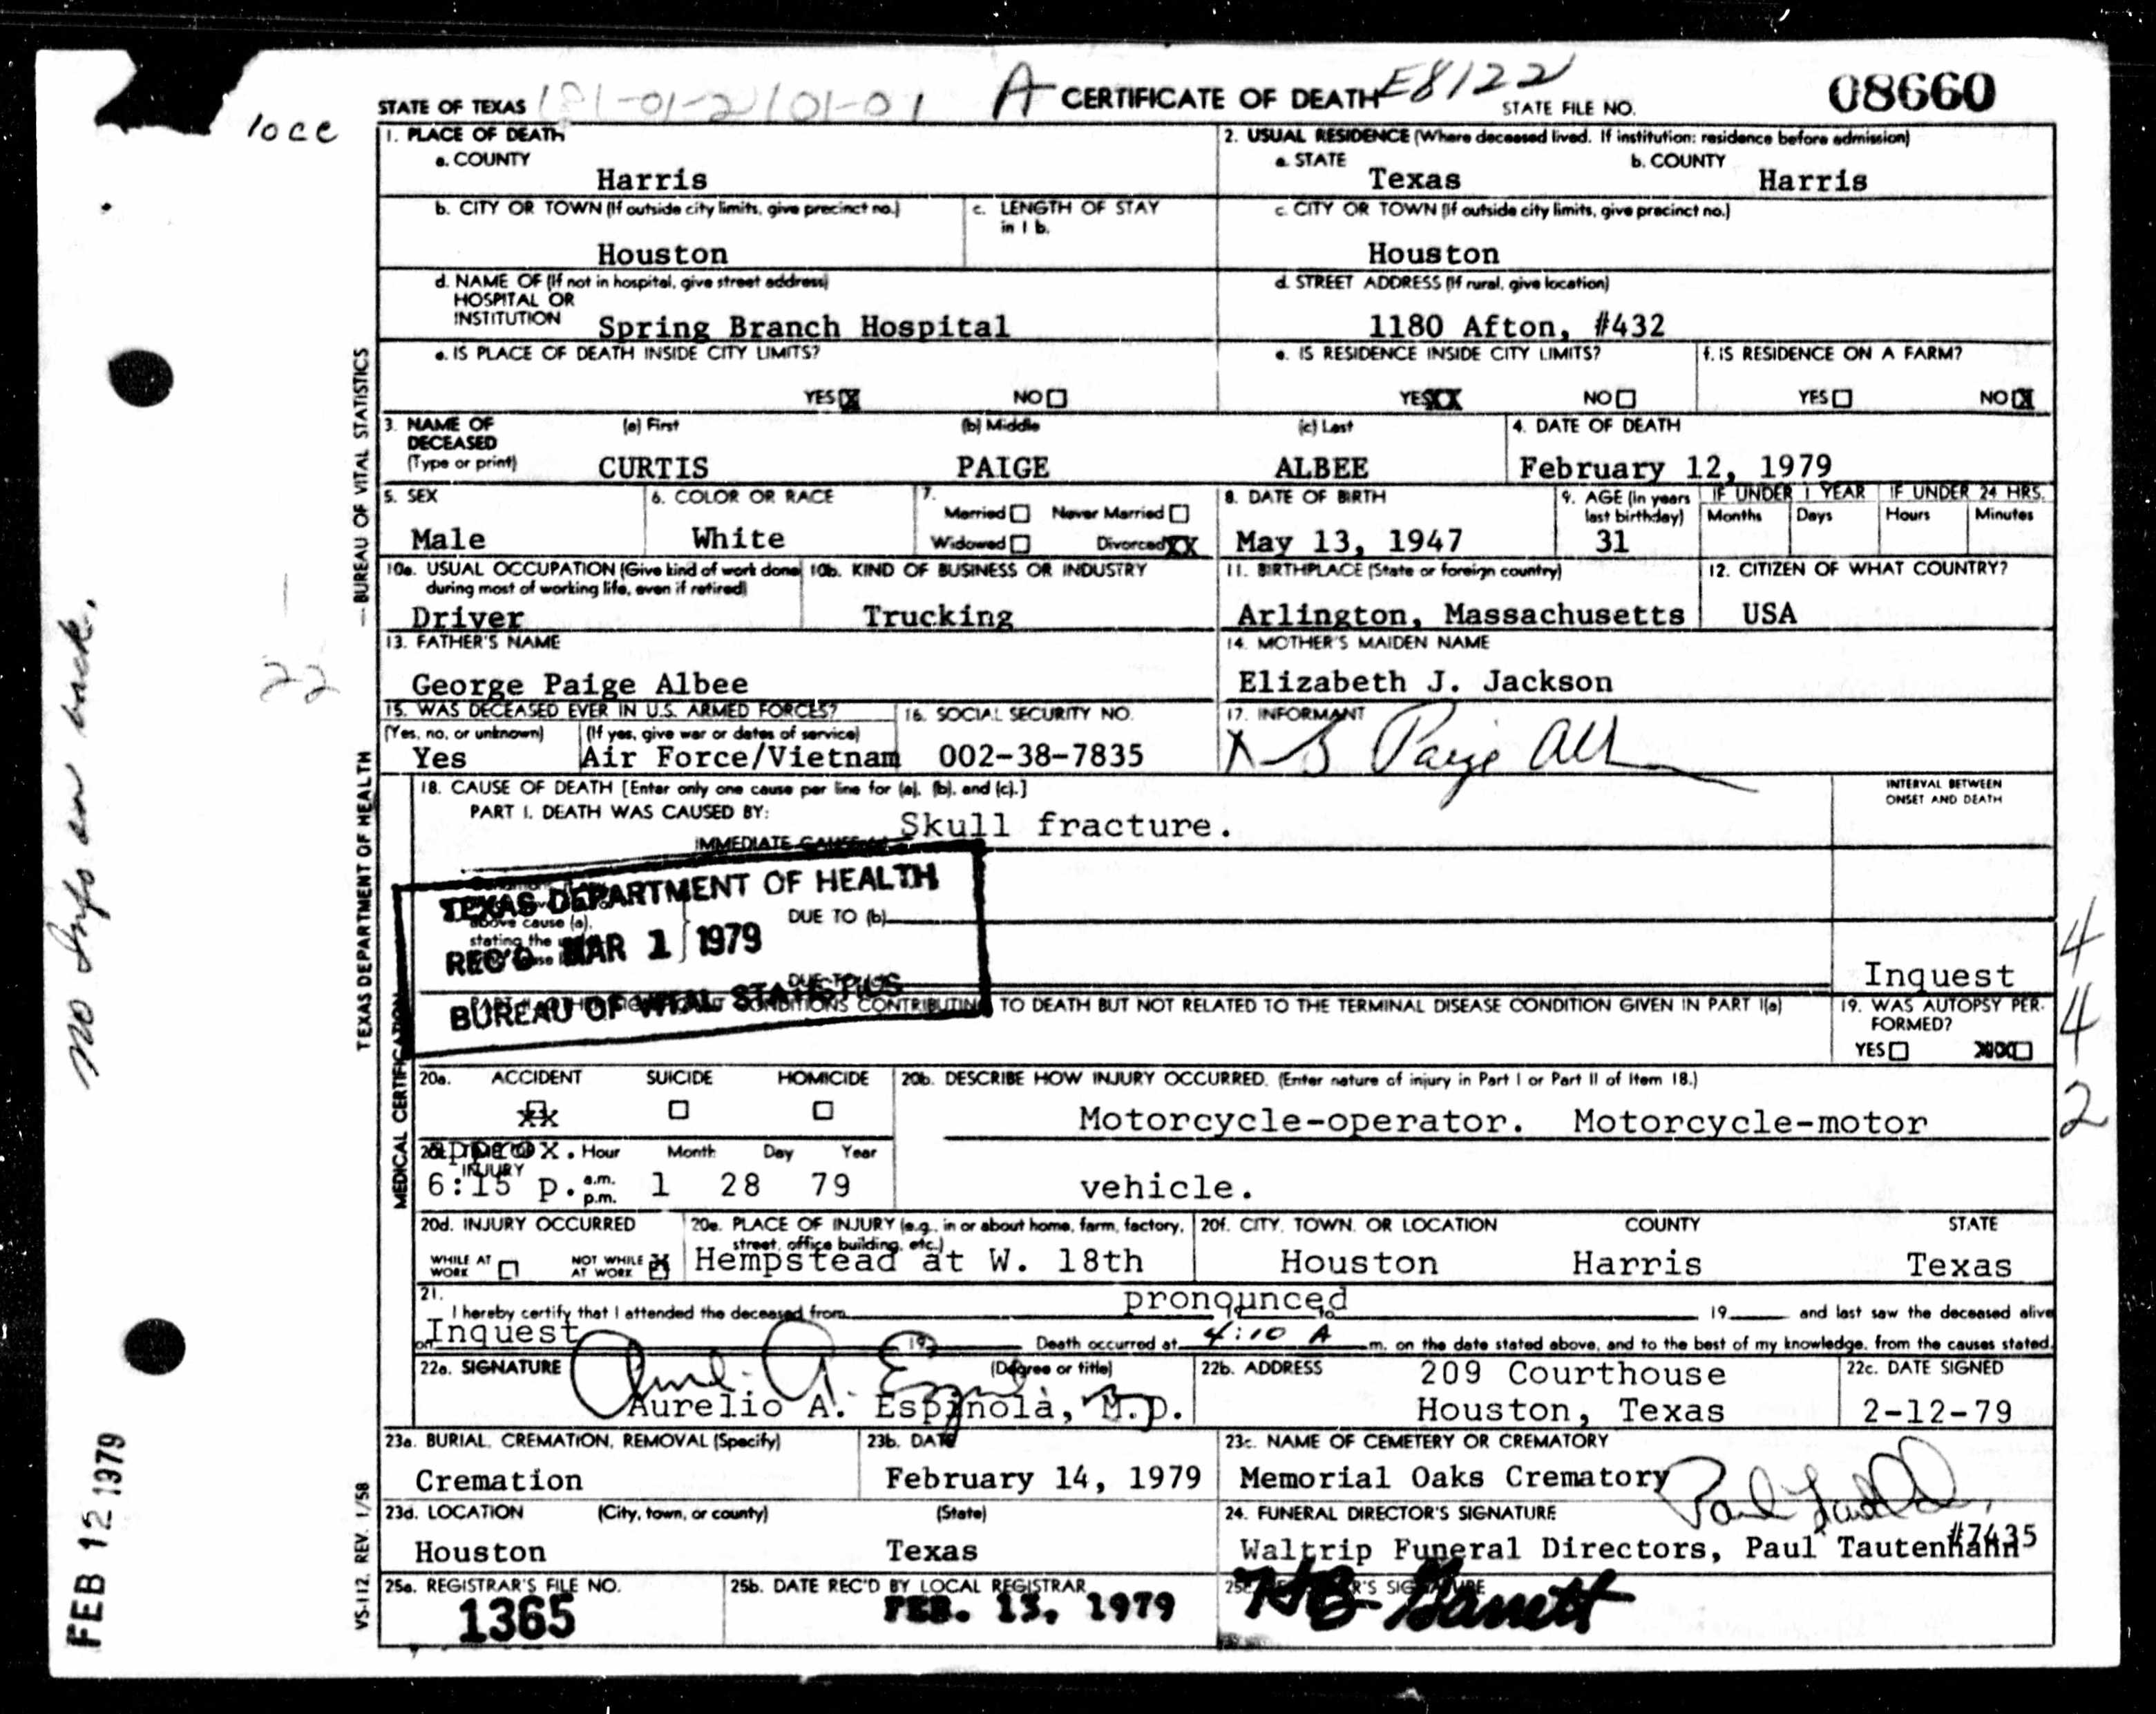 STATE OF TEXAS A CERTIFICATE OF DEATH E8122 STATE FILE NO. 08660
1. PLACE OF DEATH
a. COUNTY
Harris
2. USUAL RESIDENCE (Where deceased lived. If institution: residence before admission)
a. STATE b. COUNTY
Texas Harris
b. CITY OR TOWN (If outside city limits, give precinct no.) c. LENGTH OF STAY in 1 b.
Houston
c. CITY OR TOWN (If outside city limits, give precinct no.)
Houston
d. NAME OF (If not in hospital, give street address)
HOSPITAL OR
INSTITUTION Spring Branch Hospital
d. STREET ADDRESS (If rural, give location)
1180 Afton, #432
e. IS PLACE OF DEATH INSIDE CITY LIMITS?
YES X NO
e. IS RESIDENCE INSIDE CITY LIMITS?
YES XX NO
f. IS RESIDENCE ON A FARM?
YES NO X
3. NAME OF DECEASED (Type or print) (a) First (b) Middle (c) Last
CURTIS PAIGE ALBEE
4. DATE OF DEATH
February 12, 1979
5. SEX
Male
6. COLOR OR RACE
White
7.
Married Never Married
Widowed Divorced XX
8. DATE OF BIRTH
May 13, 1947
9. AGE (in years last birthday)
31
IF UNDER 1 YEAR IF UNDER 24 HRS.
Months Days Hours Minutes
10a. USUAL OCCUPATION (Give kind of work done during most of working life, even if retired)
Driver
10b. KIND OF BUSINESS OR INDUSTRY
Trucking
11. BIRTHPLACE (State or foreign country)
Arlington, Massachusetts
12. CITIZEN OF WHAT COUNTRY?
USA
13. FATHER'S NAME
George Paige Albee
14. MOTHER'S MAIDEN NAME
Elizabeth J. Jackson
15. WAS DECEASED EVER IN U.S. ARMED FORCES?
(Yes, no, or unknown) (If yes, give war or dates of service)
Yes Air Force/Vietnam
16. SOCIAL SECURITY NO.
002-38-7835
17. INFORMANT
X Paige
18. CAUSE OF DEATH [Enter only one cause per line for (a), (b), and (c).]
PART I. DEATH WAS CAUSED BY:
IMMEDIATE CAUSE Skull fracture.
INTERVAL BETWEEN
ONSET AND DEATH
TEXAS DEPARTMENT OF HEALTH
REC'D MAR 1 1979
BUREAU OF VITAL STATISTICS
above cause (a),
stating the
DUE TO (b)
DUE TO
Inquest
CONDITIONS CONTRIBUTING TO DEATH BUT NOT RELATED TO THE TERMINAL DISEASE CONDITION GIVEN IN PART I(a)
19. WAS AUTOPSY PERFORMED?
YES
4
4
2
20a. ACCIDENT SUICIDE HOMICIDE
XX
20b. DESCRIBE HOW INJURY OCCURRED. (Enter nature of injury in Part I or Part II of Item 18.)
Motorcycle-operator. Motorcycle-motor
vehicle.
approx. Hour Month Day Year
INJURY
6:15 p. a.m. p.m. 1 28 79
20d. INJURY OCCURRED
WHILE AT WORK NOT WHILE AT WORK X
20e. PLACE OF INJURY (e.g., in or about home, farm, factory, street, office building, etc.)
Hempstead at W. 18th
20f. CITY, TOWN, OR LOCATION COUNTY STATE
Houston Harris Texas
21.
I hereby certify that I attended the deceased from pronounced to 19 and last saw the deceased alive
on Inquest 19 Death occurred at 4:10 A m. on the date stated above, and to the best of my knowledge, from the causes stated.
22a. SIGNATURE (Degree or title)
Aurelio A. Espinola, M.D.
22b. ADDRESS
209 Courthouse
Houston, Texas
22c. DATE SIGNED
2-12-79
23a. BURIAL, CREMATION, REMOVAL (Specify)
Cremation
23b. DATE
February 14, 1979
23c. NAME OF CEMETERY OR CREMATORY
Memorial Oaks Crematory
23d. LOCATION (City, town, or county) (State)
Houston Texas
24. FUNERAL DIRECTOR'S SIGNATURE
Waltrip Funeral Directors, Paul Tautenhahn #7435
25a. REGISTRAR'S FILE NO.
1365
25b. DATE REC'D BY LOCAL REGISTRAR
FEB. 13, 1979
HB Garrett
10cc
22
No Info on back.
FEB 12 1979
TEXAS DEPARTMENT OF HEALTH — BUREAU OF VITAL STATISTICS
MEDICAL CERTIFICATION
VS-112, REV. 1/58